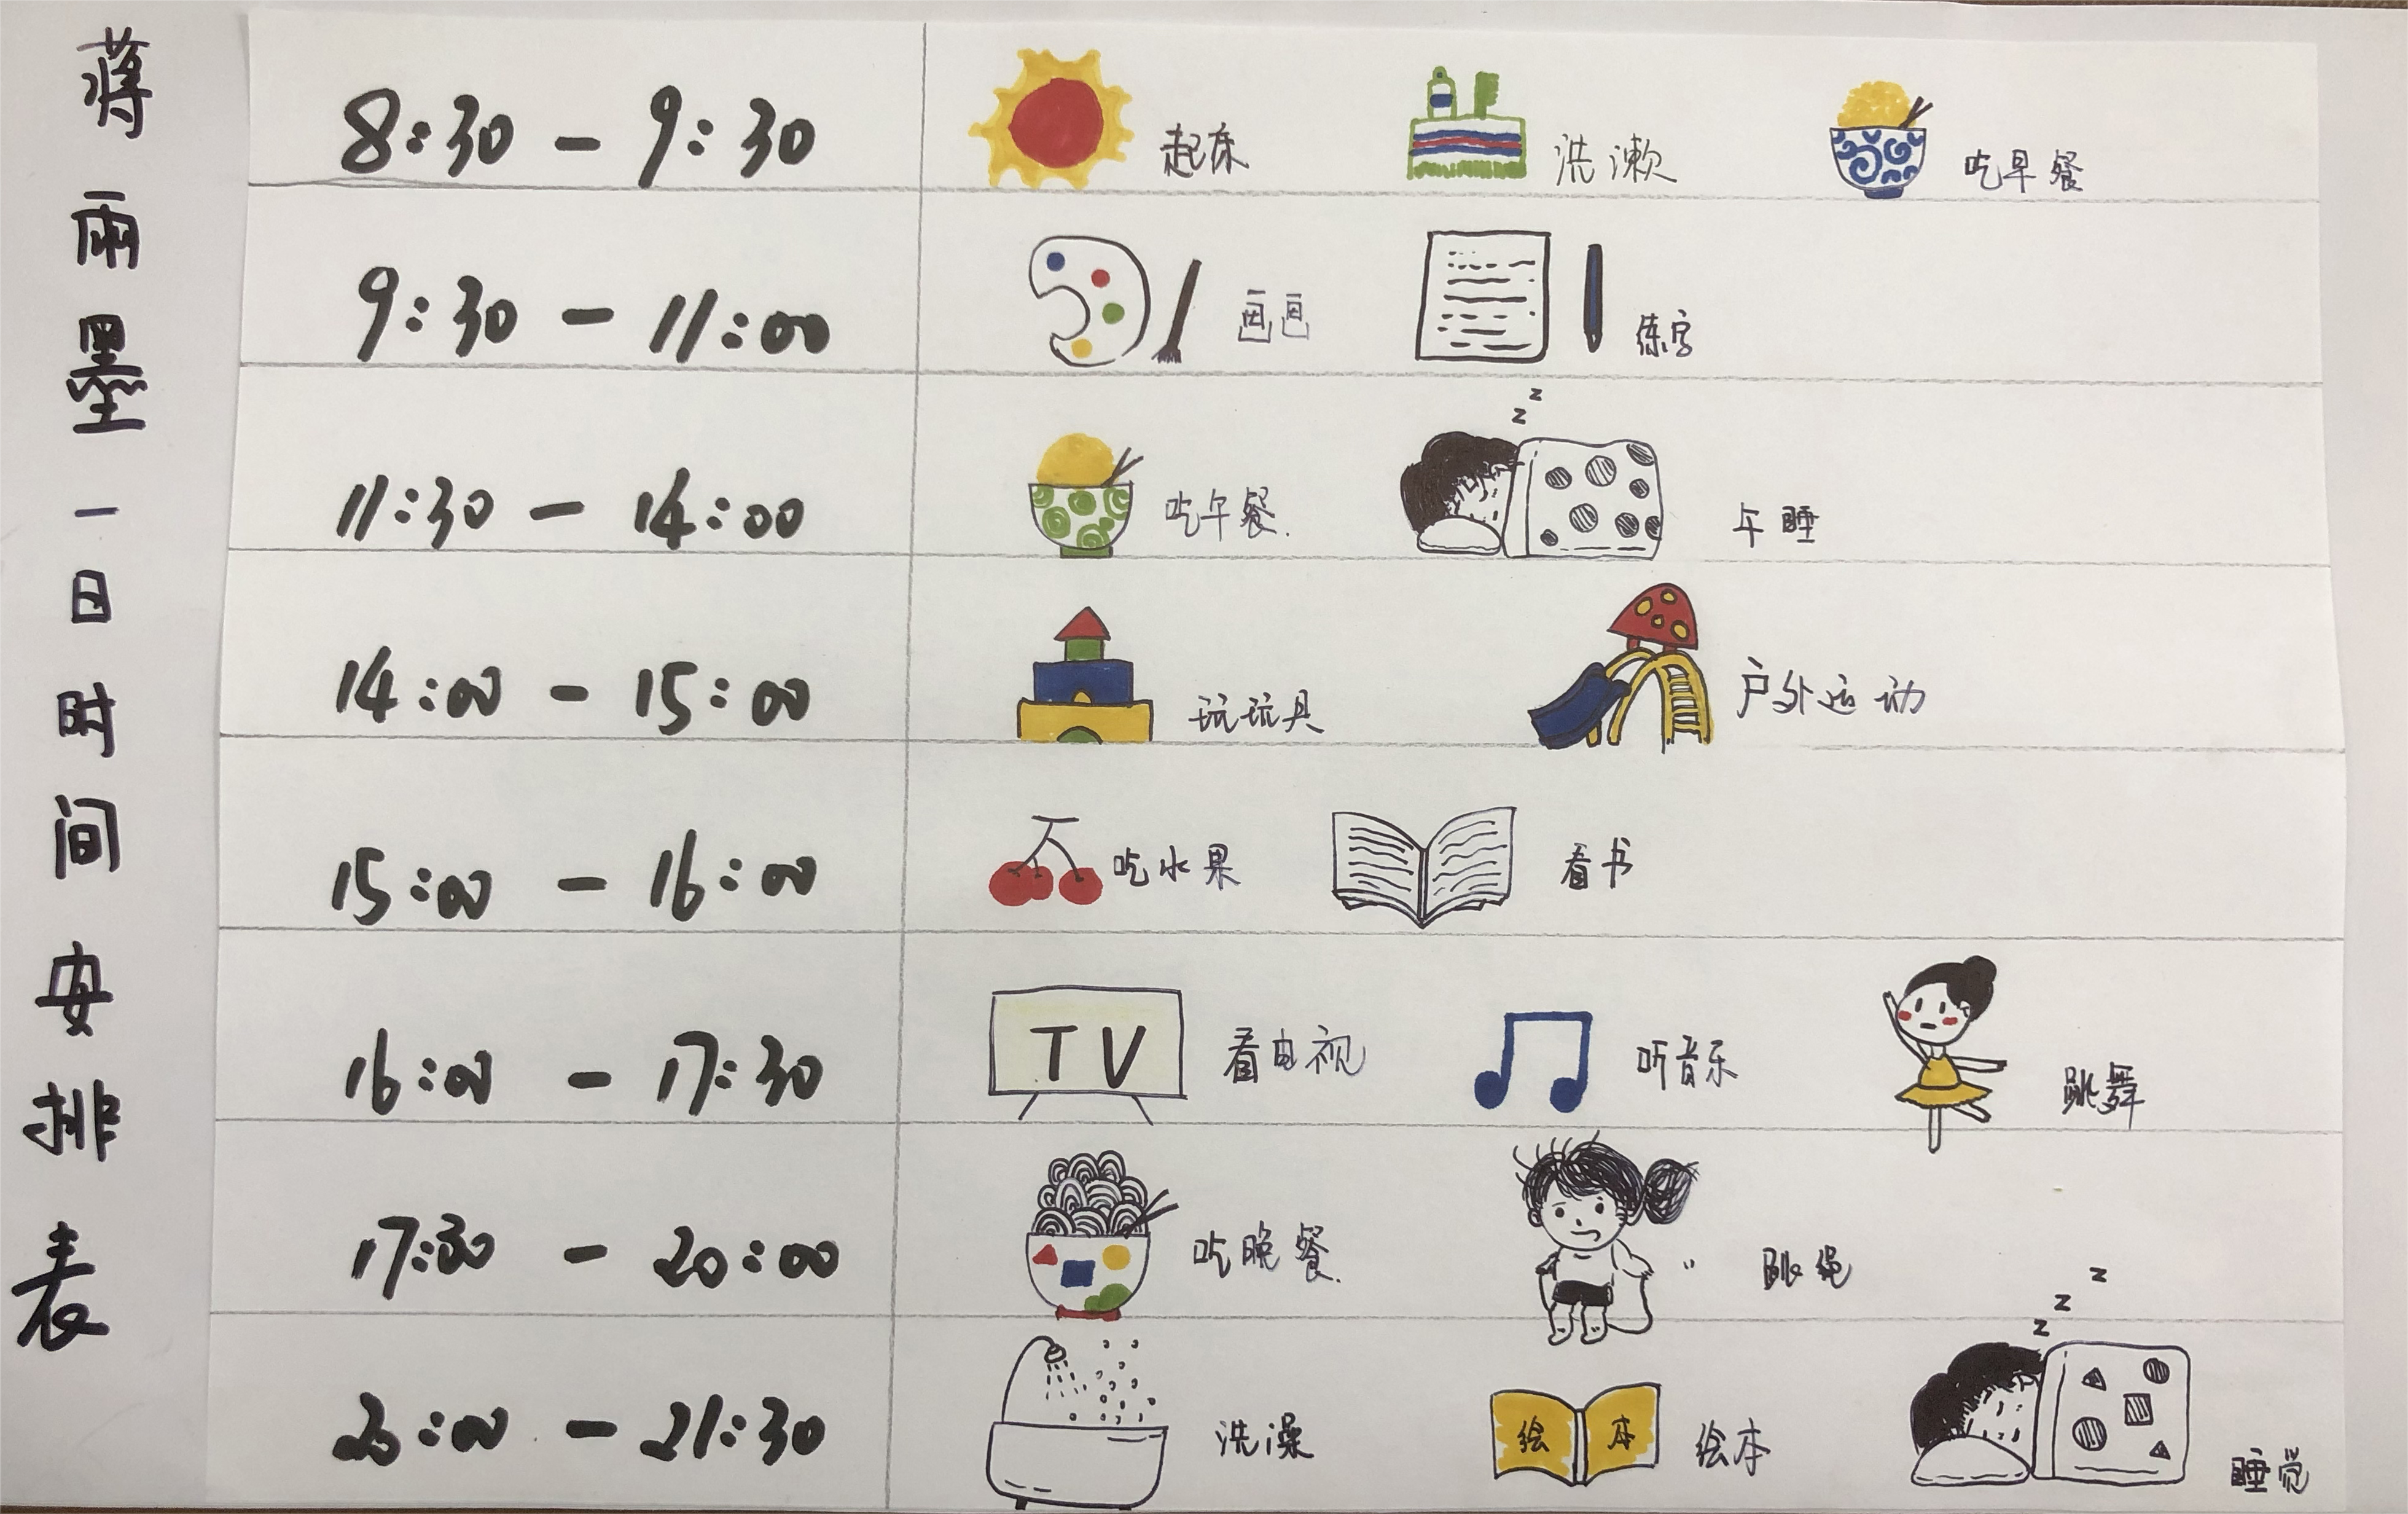 蒋雨墨一日时间安排表
8:30 - 9:30 起床 洗漱 吃早餐
9:30 - 11:00 画画 练字
z
z
11:30 - 14:00 吃午餐. 午睡
14:00 - 15:00 玩玩具 户外运动
15:00 - 16:00 吃水果 看书
16:00 - 17:30 TV 看电视 听音乐 跳舞
17:30 - 20:00 吃晚餐. 跳绳
z
z
z
20:00 - 21:30 洗澡 绘本 绘本 睡觉